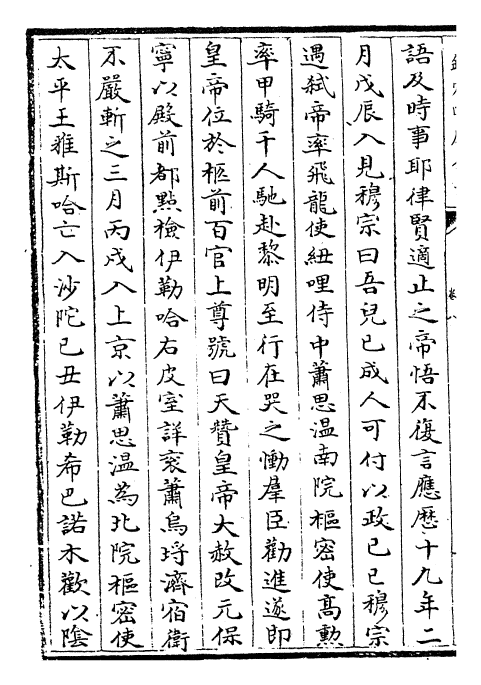 語及時事耶律賢適止之帝悟不復言應歷十九年二
月戊辰入見穆宗曰吾兒已成人可付以政己巳穆宗
遇弑帝率飛龍使紐哩侍中蕭思温南院樞密使高勲
率甲騎千人馳赴黎明至行在哭之慟羣臣勸進遂即
皇帝位於柩前百官上尊號曰天贊皇帝大赦改元保
寧以殿前都點檢伊勒哈右皮室詳衮蕭烏埒濟宿衛
不嚴斬之三月丙戌入上京以蕭思温為北院樞密使
太平王雅斯哈亡入沙陀己丑伊勒希巴諾木歡以隂